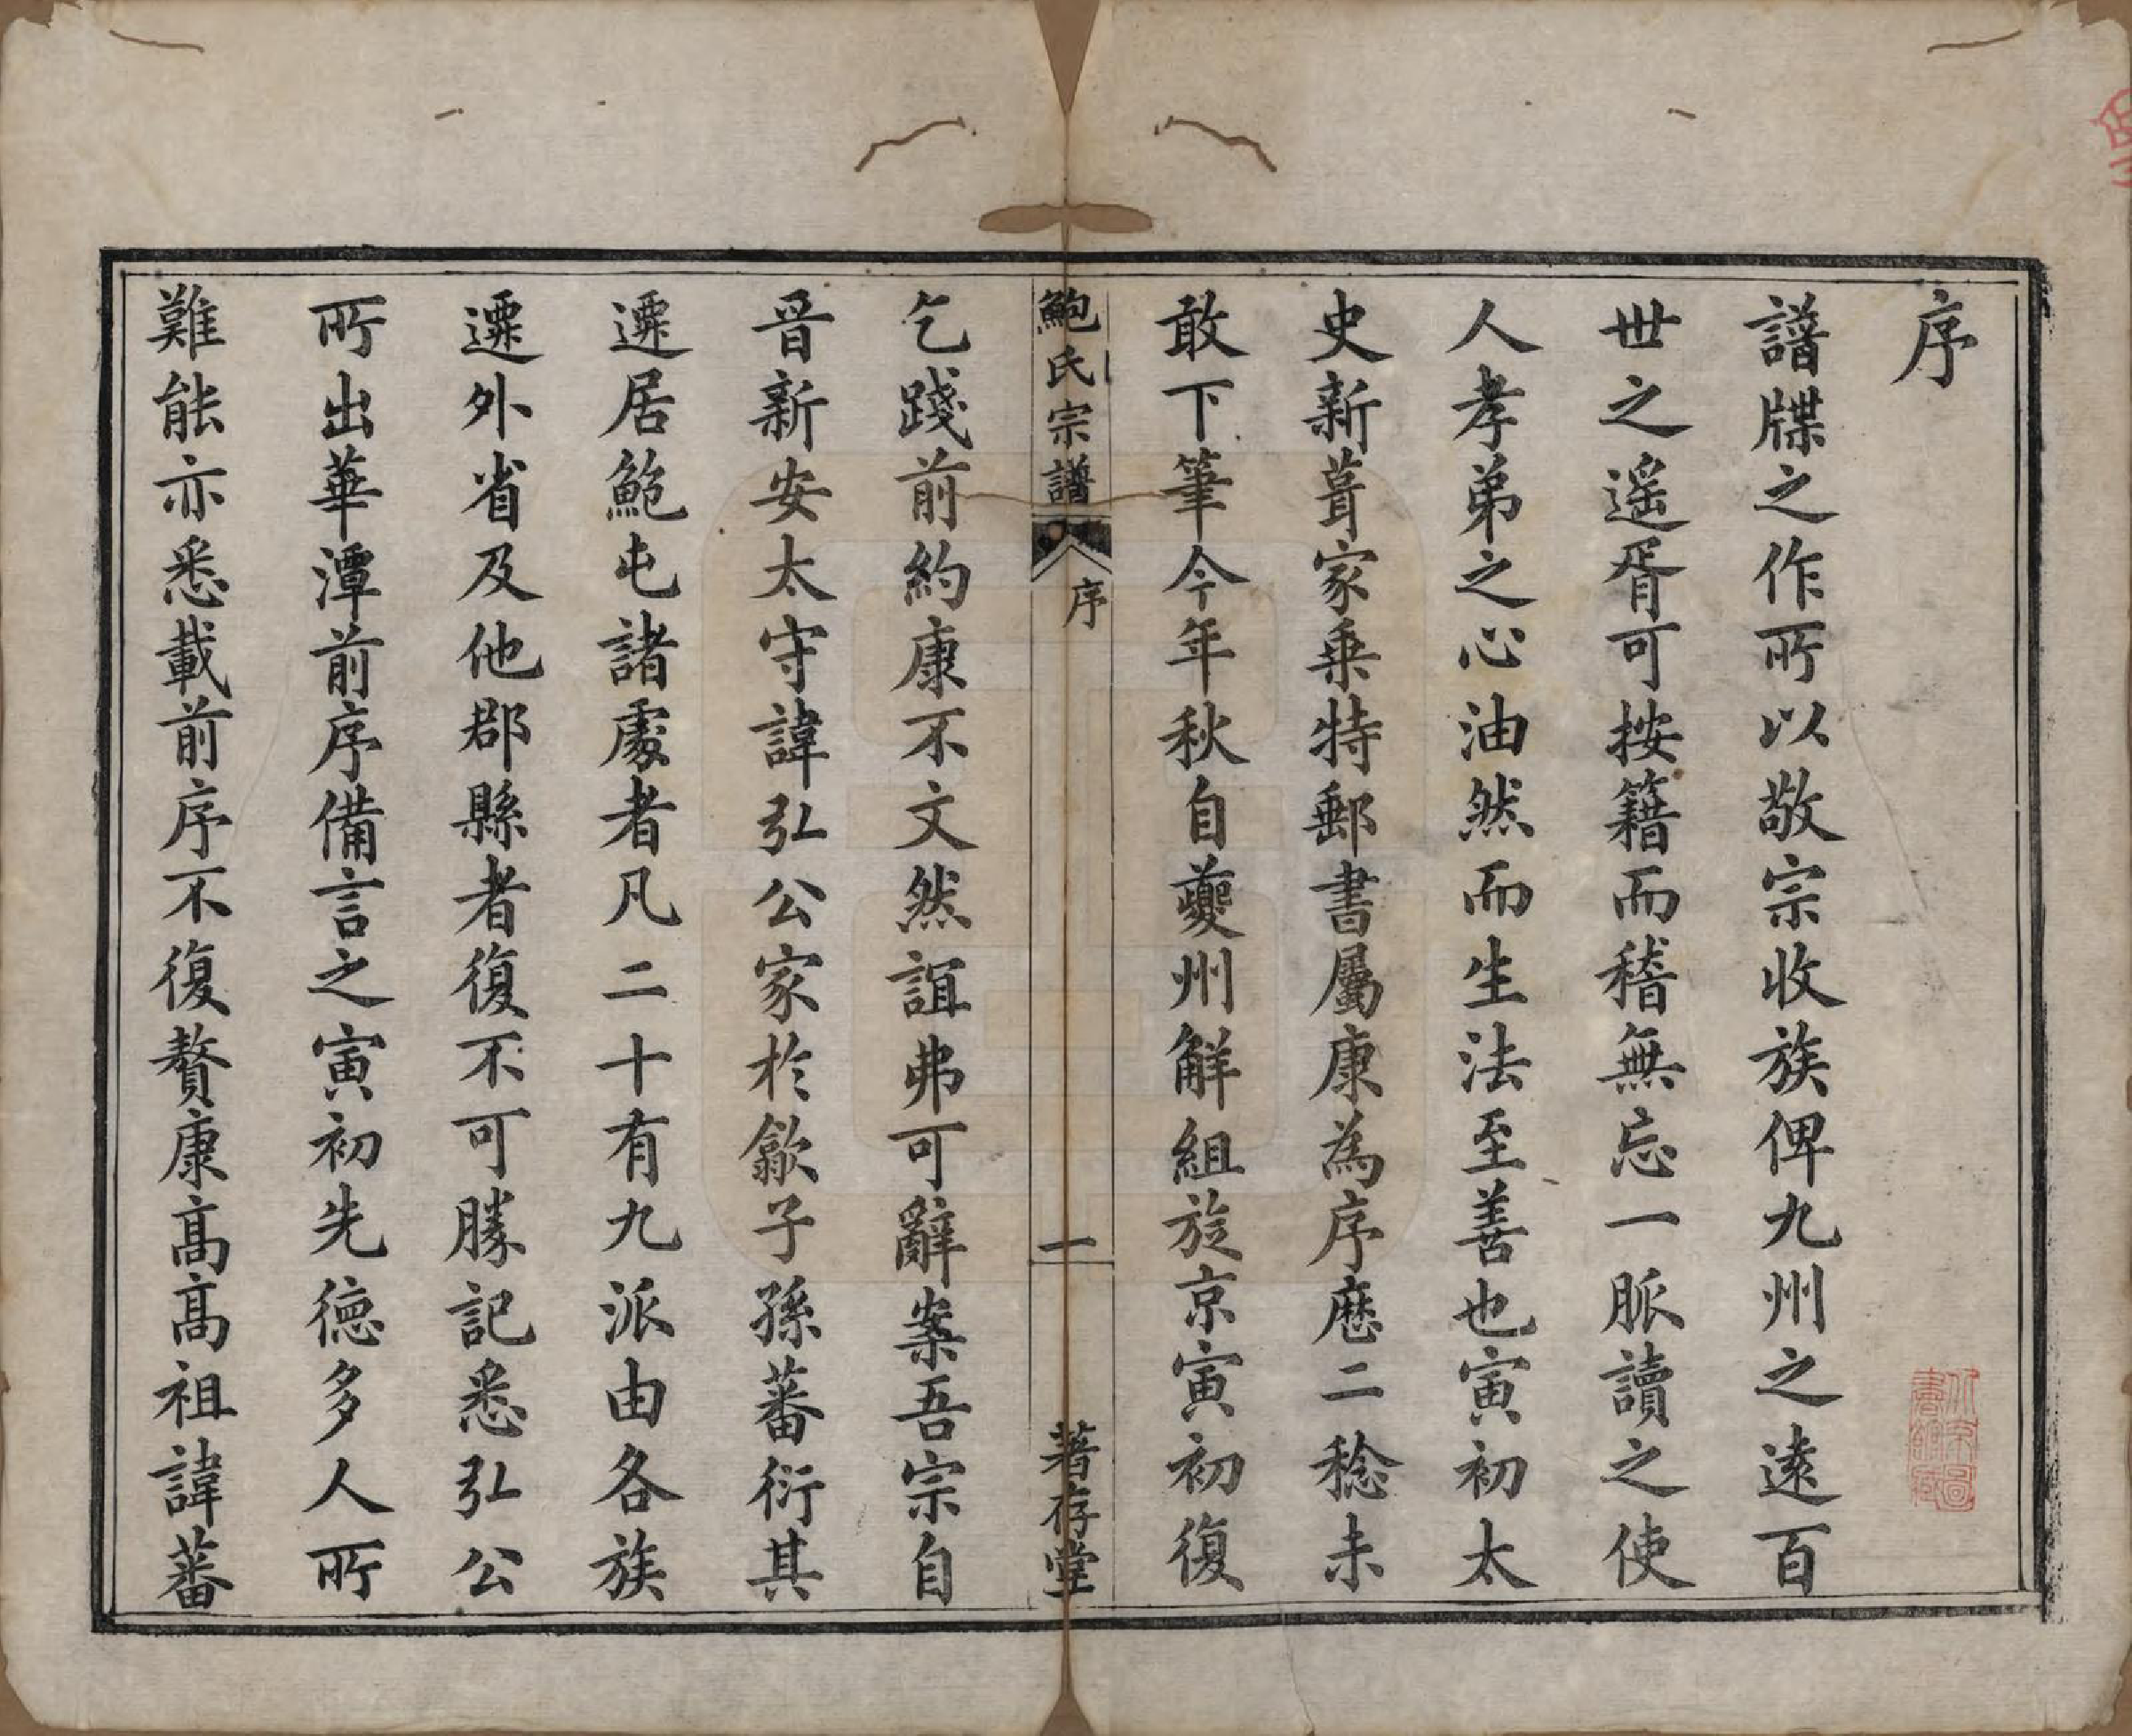 序
譜牒之作所以敬宗收族俾九州之遠百
世之遙胥可按籍而稽無忘一脈讀之使
人孝弟之心油然而生法至善也寅初太
史新葺家乗特郵書屬康為序歷二稔未
敢下筆今年秋自夔州解組旋京寅初復
鮑氏宗譜
序
一
著存堂
乞踐前約康不文然誼弗可辭案吾宗自
晉新安太守諱弘公家於歙子孫蕃衍其
遷居鮑屯諸處者凡二十有九派由各族
遷外省及他郡縣者復不可勝記悉弘公
所出華潭前序備言之寅初先德多人所
難能亦悉載前序不復贅康高高祖諱蕃